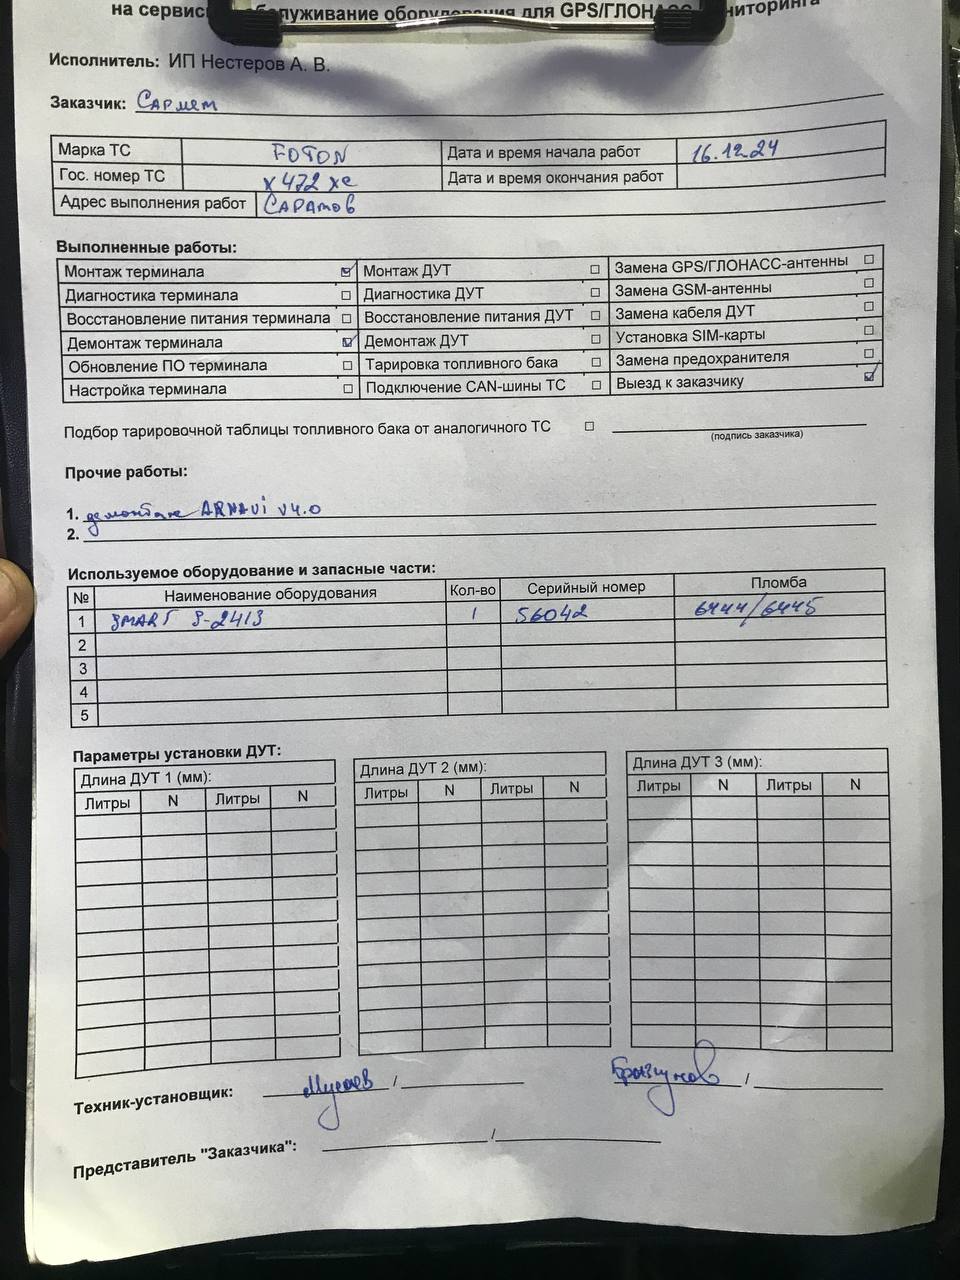 на сервисное обслуживание оборудования для GPS/ГЛОНАСС мониторинга
Исполнитель: ИП Нестеров А. В.
Заказчик: Сармет
Марка ТС FOTON Дата и время начала работ 16.12.24
Гос. номер ТС х 472 хе Дата и время окончания работ
Адрес выполнения работ Саратов
Выполненные работы:
Монтаж терминала ☑ Монтаж ДУТ ☐ Замена GPS/ГЛОНАСС-антенны ☐
Диагностика терминала ☐ Диагностика ДУТ ☐ Замена GSM-антенны ☐
Восстановление питания терминала ☐ Восстановление питания ДУТ ☐ Замена кабеля ДУТ ☐
Демонтаж терминала ☑ Демонтаж ДУТ ☐ Установка SIM-карты ☐
Обновление ПО терминала ☐ Тарировка топливного бака ☐ Замена предохранителя ☐
Настройка терминала ☐ Подключение CAN-шины ТС ☐ Выезд к заказчику ☑
Подбор тарировочной таблицы топливного бака от аналогичного ТС ☐
(подпись заказчика)
Прочие работы:
1. демонтаж ARNAVI V4.0
2.
Используемое оборудование и запасные части:
№ Наименование оборудования Кол-во Серийный номер Пломба
1 SMART S-2413 1 56042 6444/6445
2
3
4
5
Параметры установки ДУТ:
Длина ДУТ 1 (мм): Длина ДУТ 2 (мм): Длина ДУТ 3 (мм):
Литры N Литры N Литры N Литры N Литры N Литры N
Техник-установщик: Мусаев / Брызгунов /
Представитель "Заказчика": /